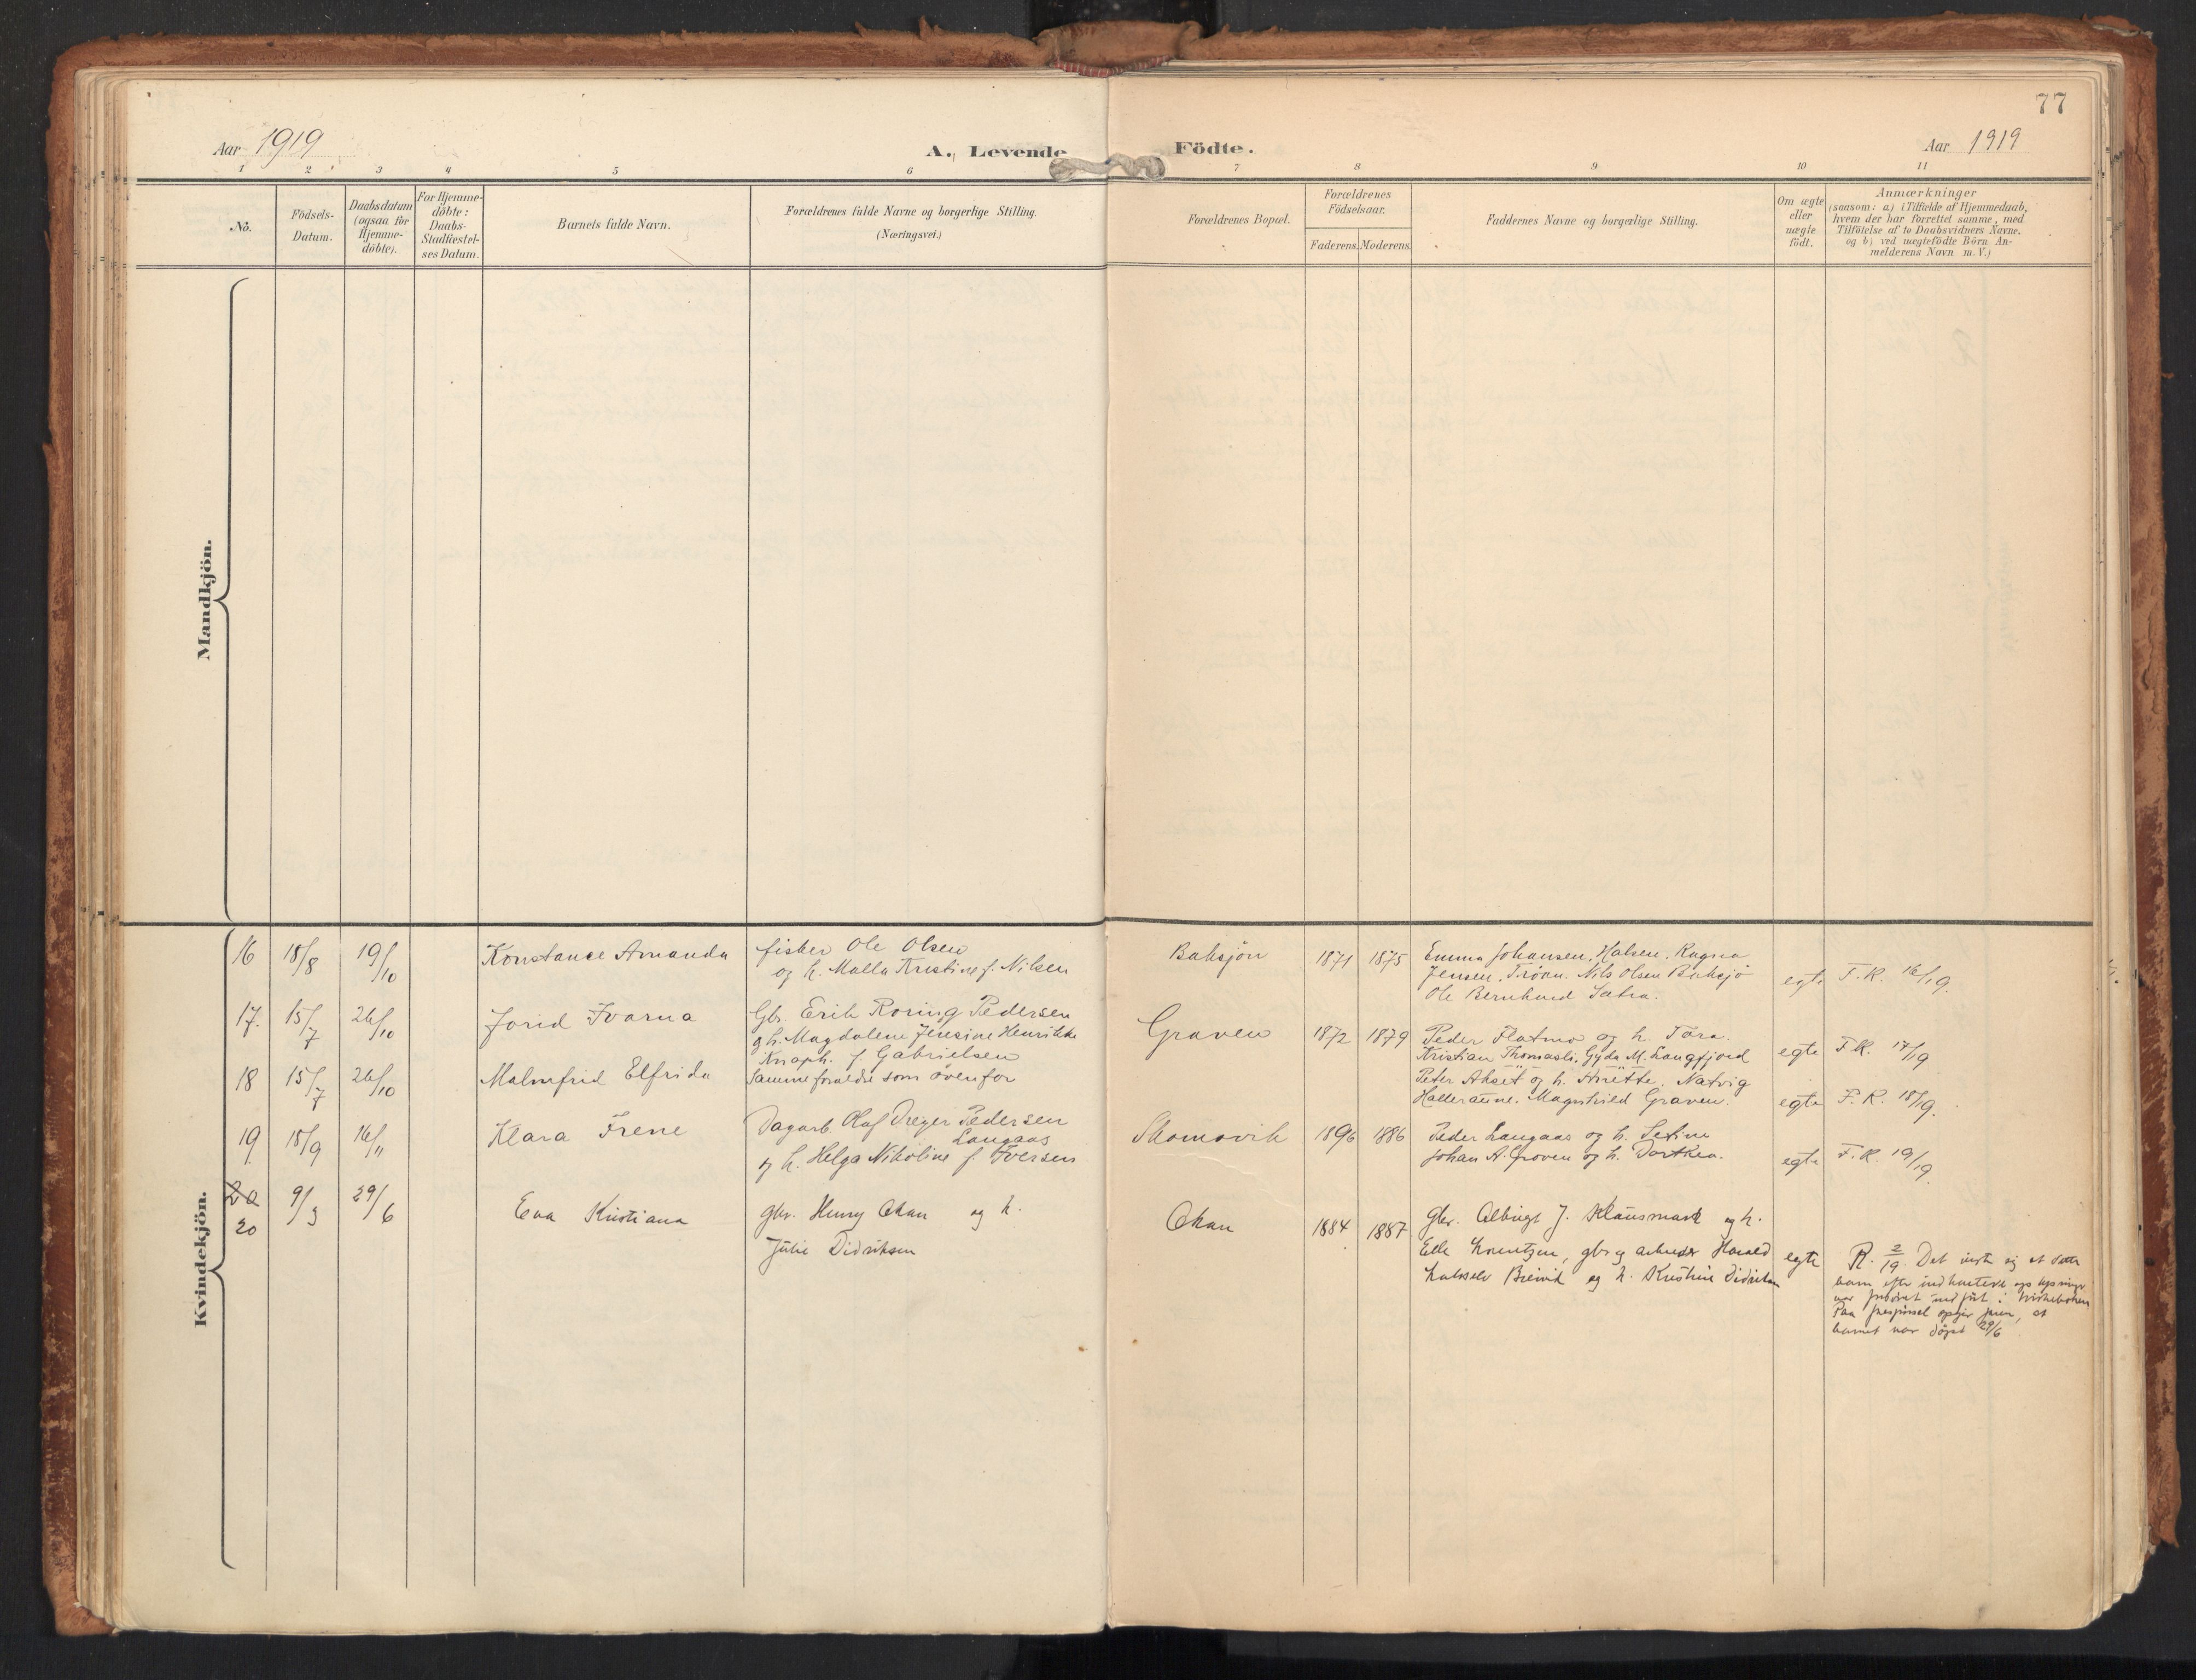 77
Aar 1919
A. Levende Födte.
Aar 1919
1 2 3 4 5 6 7 8 9 10 11
No.
Födsels-
Datum.
Daabsdatum
(ogsaa for
Hjemme-
döbte).
For Hjemme-
döbte:
Daabs-
Stadfæstel-
ses Datum.
Barnets fulde Navn.
Forældrenes fulde Navne og borgerlige Stilling.
(Næringsvei.)
Forældrenes Bopæl.
Forældrenes
Födselsaar.
Faderens. Moderens.
Faddernes Navne og borgerlige Stilling.
Om ægte
eller
uægte
födt.
Anmærkninger
(saasom: a) i Tilfælde af Hjemmedaab,
hvem der har forrettet samme, med
Tilföielse af to Daabsvidners Navne.
og b) ved uægtefödte Börn An-
melderens Navn m. V.)
Mandkjön.
Kvindekjön.
16 18/8 19/10 Konstance Amanda
fisker Ole Olsen
og h. Malla Kristine f. Nilsen
Baksjön 1871 1875
Emma Johansen, Halsen, Ragna
Jensen, Tröan. Nils Olsen Baksjö
Ole Bernhard Sætra.
egte F.R. 16/19.
17. 15/7 26/10 Jorid Ivarna
Gbr. Erik Roring Pedersen
og h. Magdalene Jensine Henrikke
Knaph. f. Gabrielsen
Graven 1872 1879
Peder Flatmo og h. Tora.
Kristian Thomasli. Gyda M. Langfjord
egte F.R. 17/19.
18 15/7 26/10 Malmfrid Elfrida
Samme forældre som ovenfor
Peter Akset og h. Anette. Natvig
Halleraune. Magnhild Graven.
egte F.R. 18/19.
19 18/9 16/11 Klara Irene
Dagarb. Olaf Dreyer Pedersen
Langaas
og h. Helga Nikoline f. Iversen
Skomovik 1896 1886
Peder Langaas og h. Setine
Johan A. Groven og h. Dortkea.
egte F.R. 19/19.
20
20 9/3 29/6 Eva Kristiana
gbr. Henry Okan og h.
Julie Didriksen
Okan 1884 1887
gbr. Albrigt J. Klausmark og h.
Elle Lorentzen, gbr og arbeider Harald
Lakselv Breivik og h. Kristine Didriksen
egte R. 2/19. Det viste sig at dette
barn efter indhentede oplysninger
var indfört i kirkeboken
Paa forespörsel opgir, at
barnet var döpt 29/6